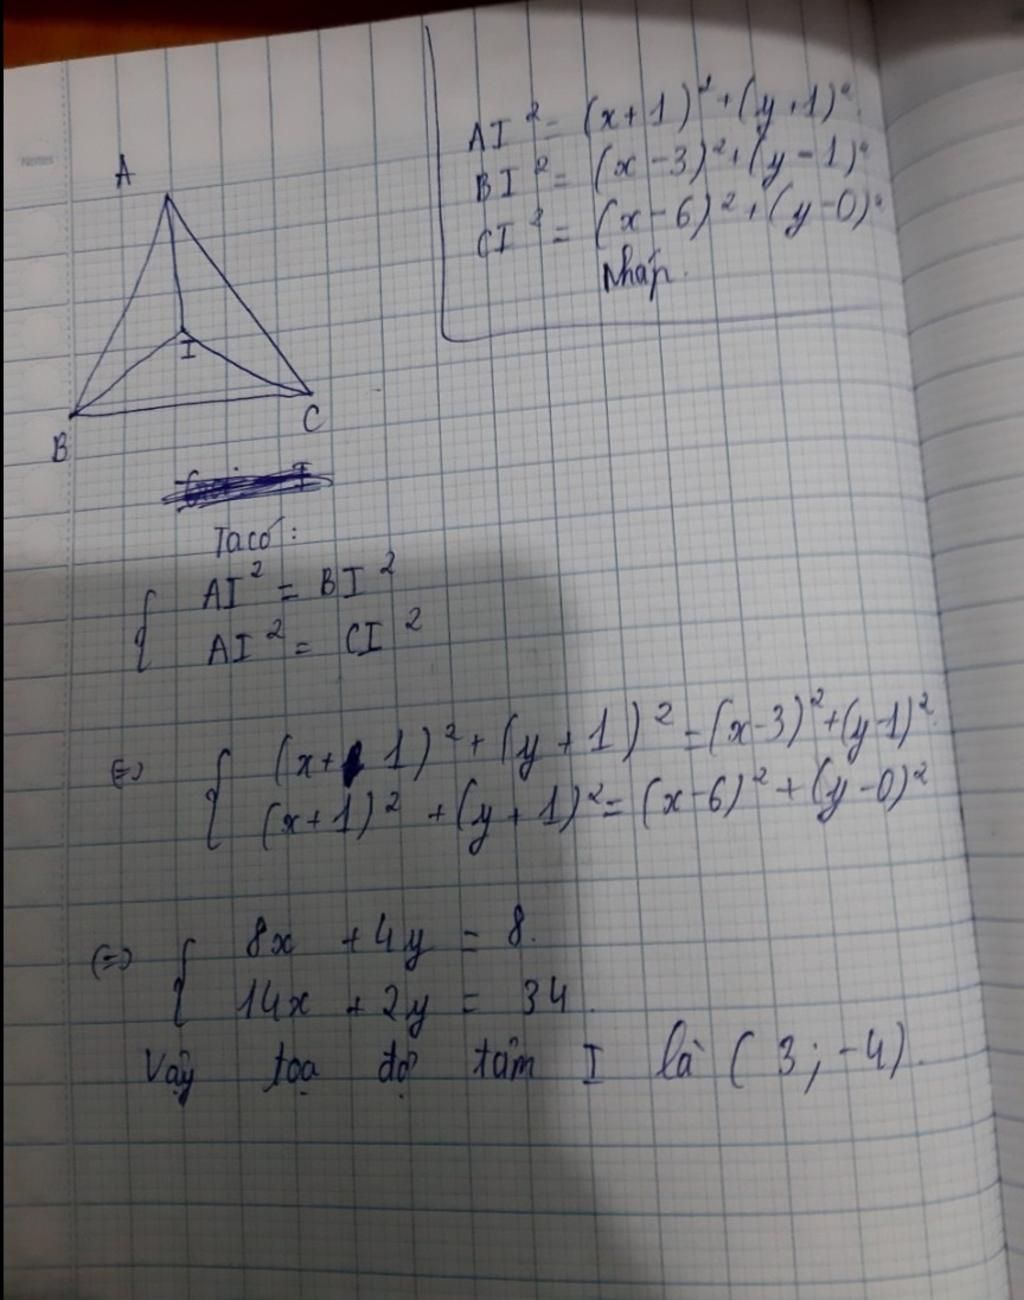 AI² = (x+1)² + (y+1)²
BI² = (x-3)² + (y-1)²
CI² = (x-6)² + (y-0)²
Nháp.
Notes
A
I
B
C
Ta có:
{ AI² = BI²
AI² = CI²
(=) { (x+1)² + (y+1)² = (x-3)² + (y-1)²
(x+1)² + (y+1)² = (x-6)² + (y-0)²
(=) { 8x + 4y = 8.
14x + 2y = 34.
Vậy tọa độ tâm I là (3; -4).